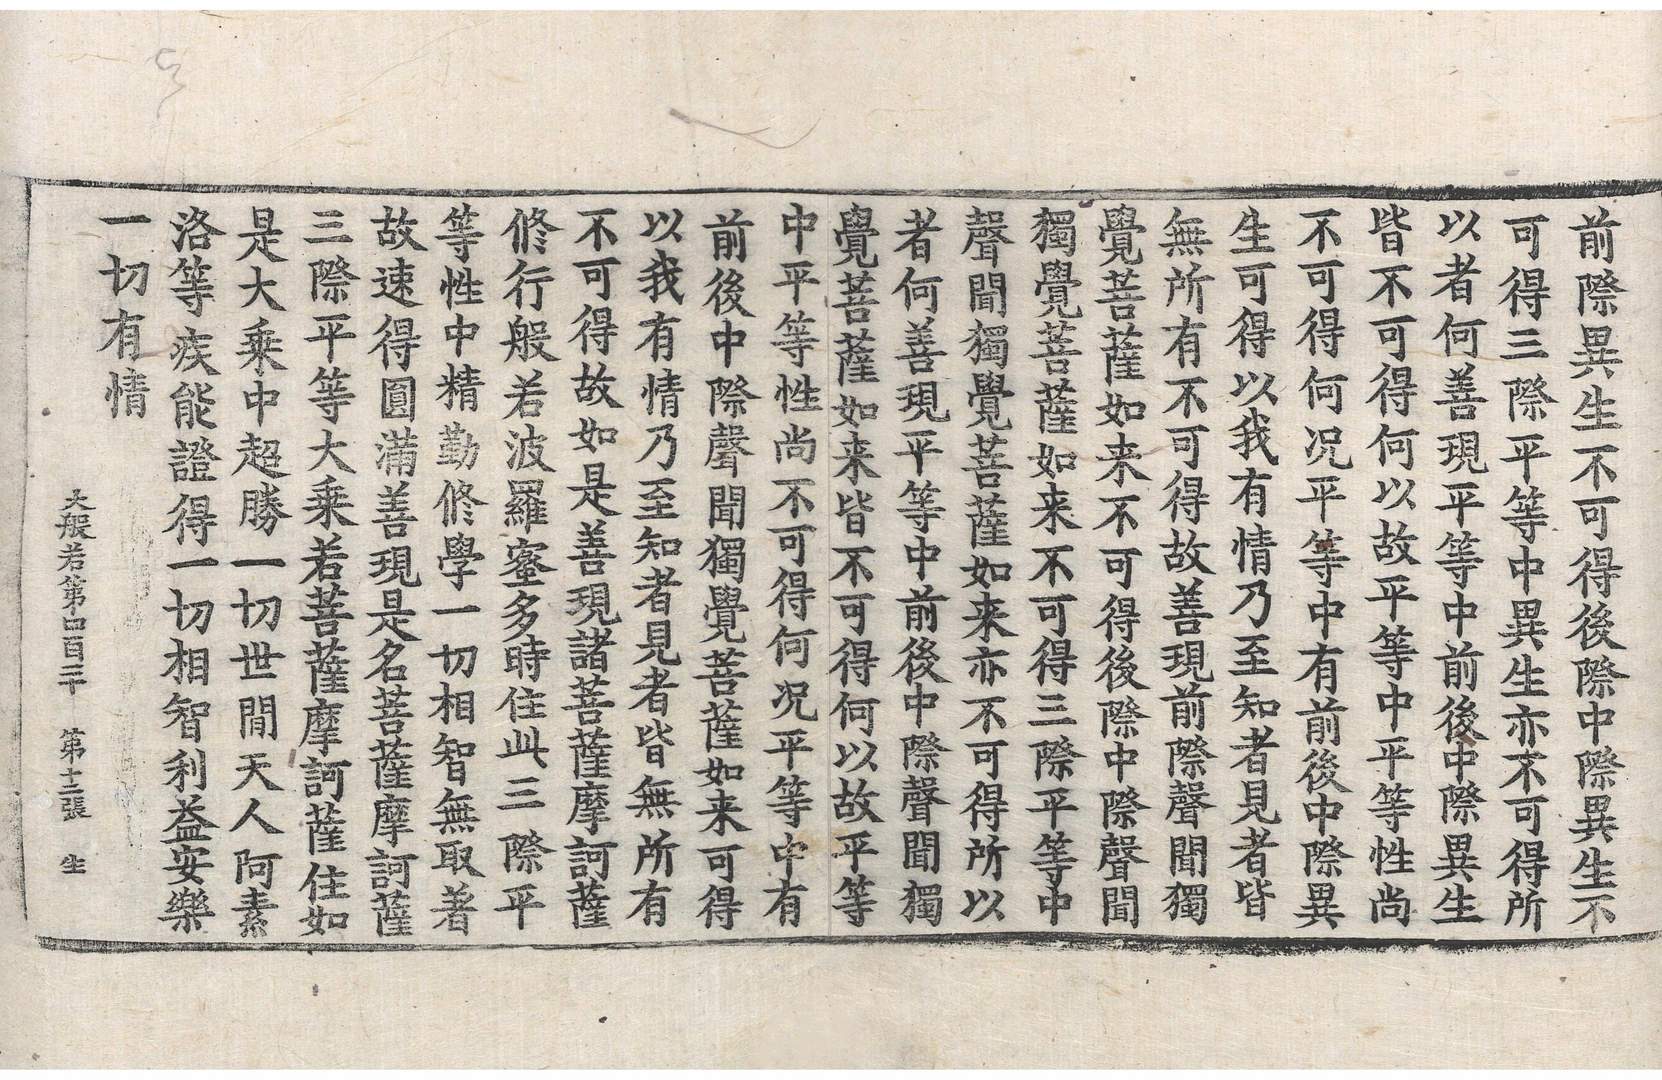 前際異生不可得後際中際異生不
可得三際平等中異生亦不可得所
以者何善現平等中前後中際異生
皆不可得何以故平等中平等性尚
不可得何况平等中有前後中際異
生可得以我有情乃至知者見者皆
無所有不可得故善現前際聲聞獨
覺菩薩如来不可得後際中際聲聞
獨覺菩薩如来不可得三際平等中
聲聞獨覺菩薩如来亦不可得所以
者何善現平等中前後中際聲聞獨
覺菩薩如来皆不可得何以故平等
中平等性尚不可得何况平等中有
前後中際聲聞獨覺菩薩如来可得
以我有情乃至知者見者皆無所有
不可得故如是善現諸菩薩摩訶薩
修行般若波羅蜜多時住此三際平
等性中精勤修學一切相智無取著
故速得圓滿善現是名菩薩摩訶薩
三際平等大乗若菩薩摩訶薩住如
是大乗中超勝一切世間天人阿素
洛等疾能證得一切相智利益安樂
一切有情
大般若第四百二十 第十二張 生